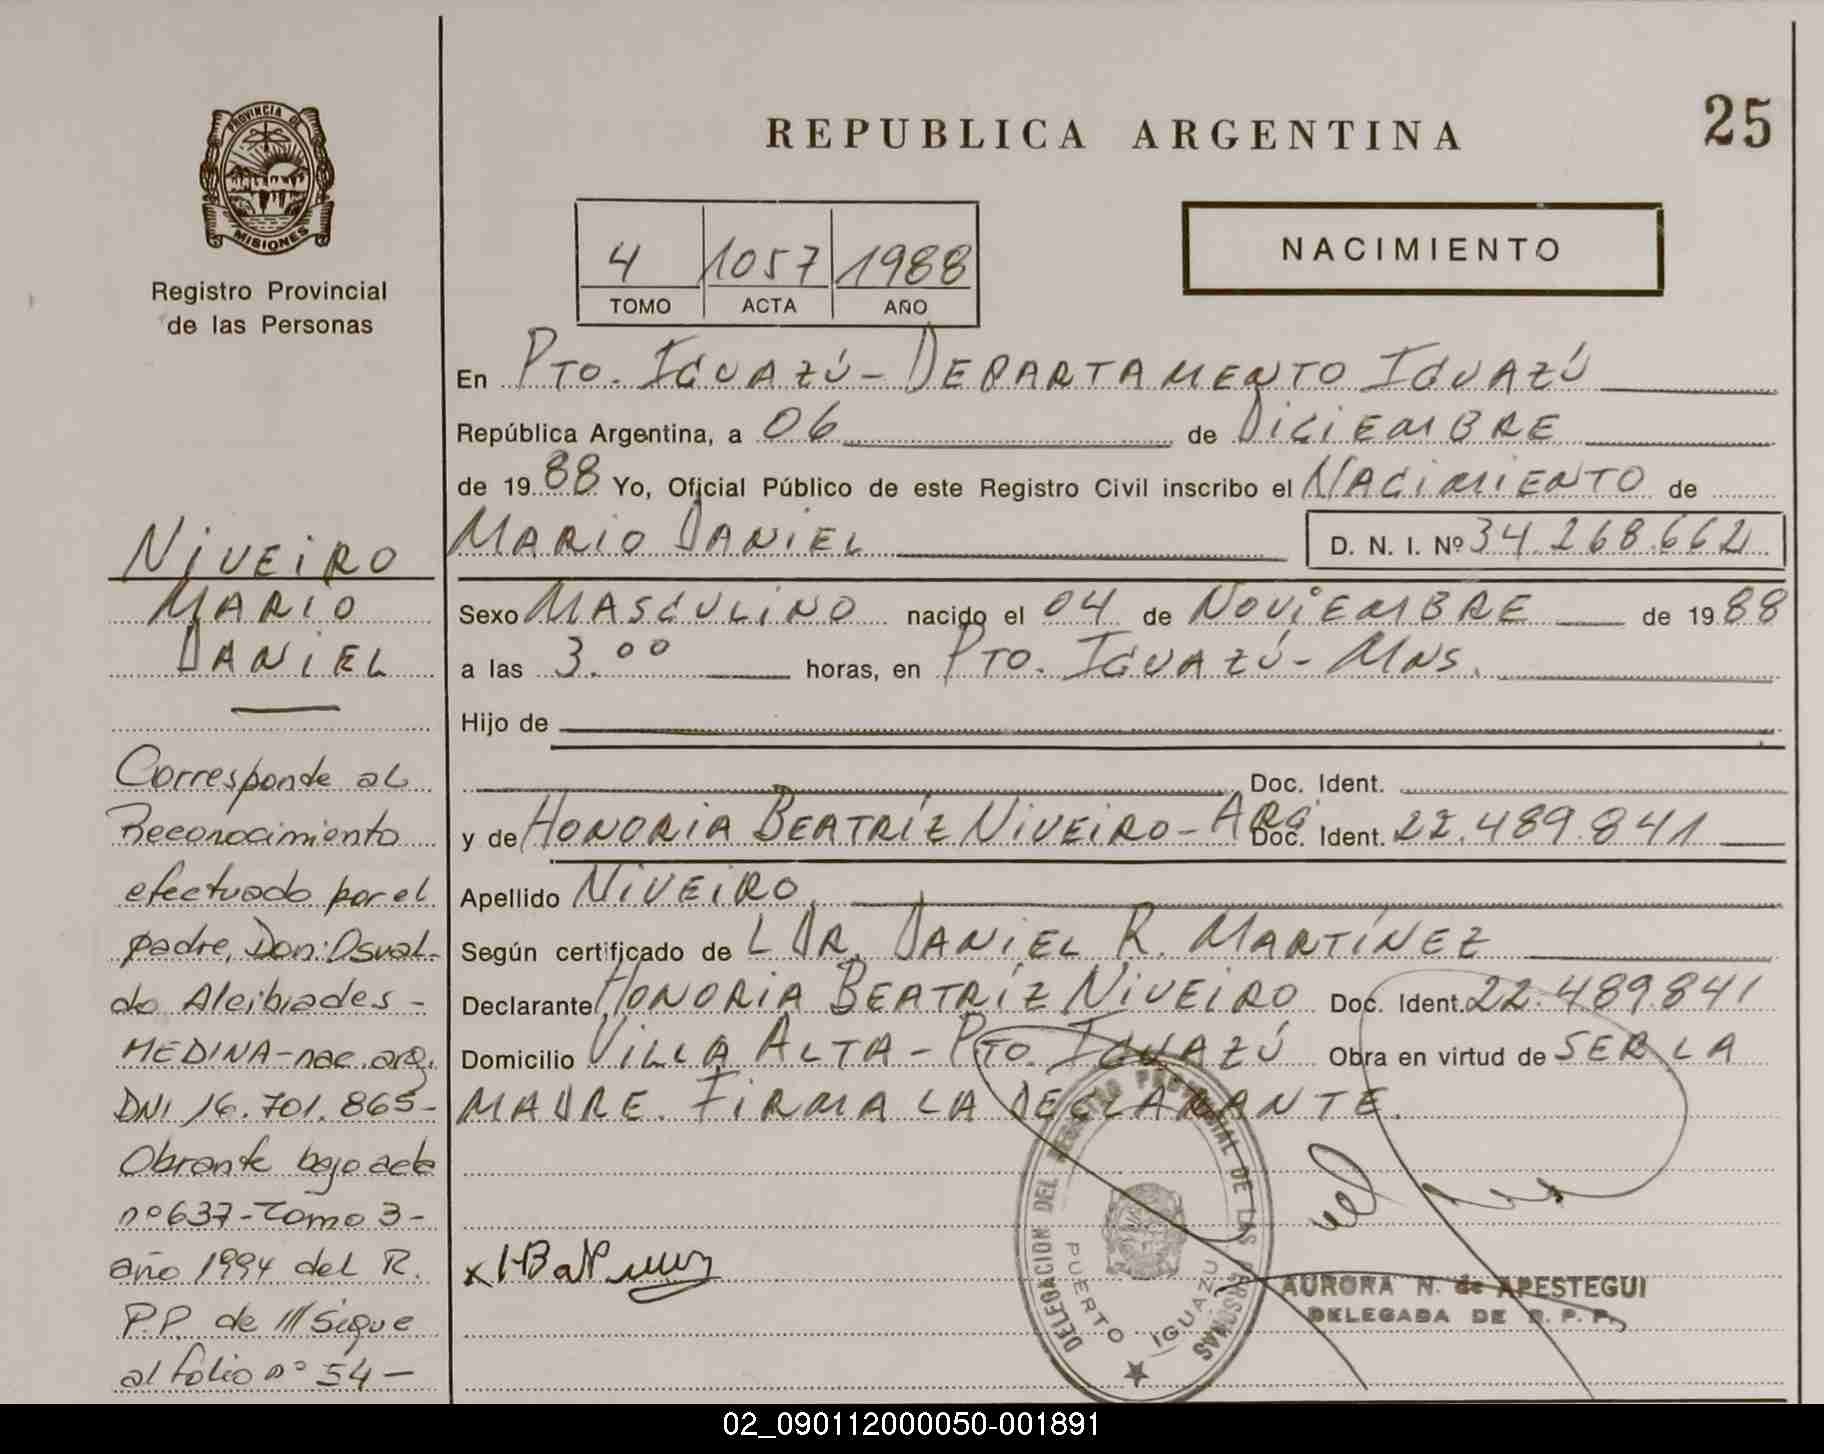 PROVINCIA DE
MISIONES
Registro Provincial
de las Personas
NIVEIRO
MARIO
DANIEL
Corresponde al
Reconocimiento
efectuado por el
padre, Don: Osval-
do Alcibiades -
MEDINA - nac. arg.
DNI 16.701.865-
Obrante bajo acta
nº 637 - Tomo 3 -
año 1994 del R.
P.P. de /// Sigue
al folio nº 54 -
REPUBLICA ARGENTINA
25
4 1057 1988
TOMO ACTA AÑO
NACIMIENTO
En PTO. IGUAZÚ - DEPARTAMENTO IGUAZÚ
República Argentina, a 06 de DICIEMBRE
de 1988 Yo, Oficial Público de este Registro Civil inscribo el NACIMIENTO de
MARIO DANIEL D. N. I. Nº 34.268.662
Sexo MASCULINO nacido el 04 de NOVIEMBRE de 1988
a las 3.00 horas, en PTO. IGUAZÚ - MNS.
Hijo de
Doc. Ident.
y de HONORIA BEATRÍZ NIVEIRO - ARG Doc. Ident. 22.489.841
Apellido NIVEIRO
Según certificado de L DR. DANIEL R. MARTÍNEZ
Declarante HONORIA BEATRÍZ NIVEIRO Doc. Ident. 22.489.841
Domicilio VILLA ALTA - PTO. IGUAZÚ Obra en virtud de SER LA
MADRE. FIRMA LA DECLARANTE.
DELEGACION DEL REGISTRO PROVINCIAL DE LAS PERSONAS
PUERTO IGUAZU
AURORA N. de APESTEGUI
DELEGADA DE R. P. P.
02_090112000050-001891